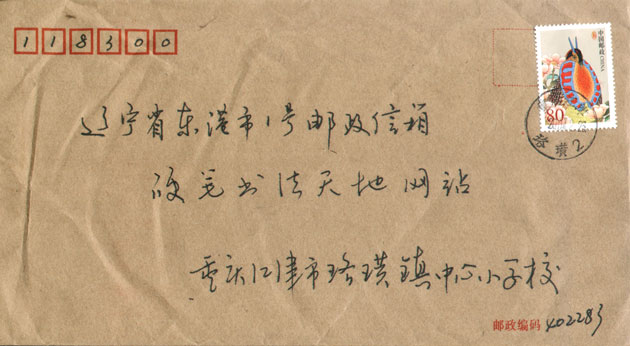 118300
中国邮政 CHINA
80
辽宁省东港市1号邮政信箱
硬笔书法天地网站
重庆江津市珞璜镇中心小学校
邮政编码 402283